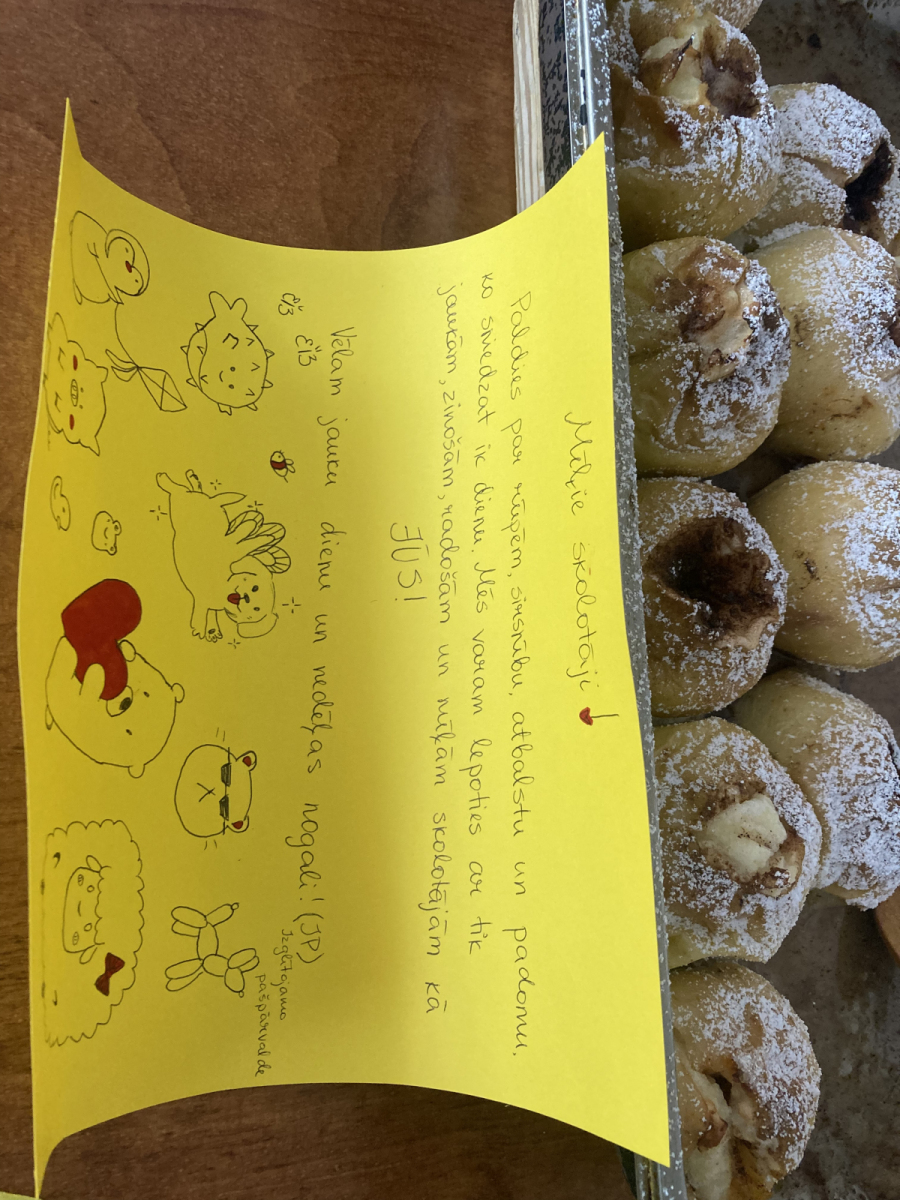 Mīļie skolotāji
Paldies par rūpēm, sirsnību, atbalstu un padomu,
ko sniedzat ik dienu. Mēs varam lepoties ar tik
jaukām, zinošām, radošām un mīļām skolotājām kā
JŪS!
Vēlam jauku dienu un nedēļas nogali! (JP)
Izglītojamo
pašpārvalde
čiš
čiš